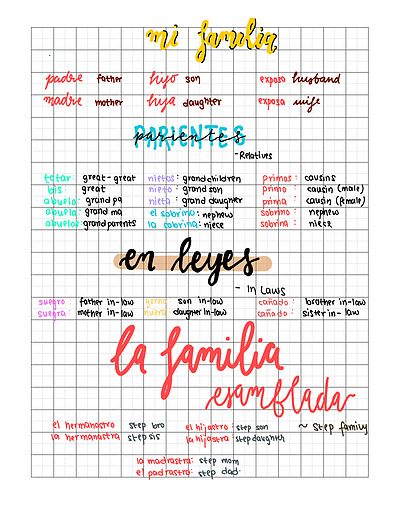 mi familia
padre father hijo son esposo husband
madre mother hija daughter esposa wife
PARIENTES
- Relatives
tatar great-great nietos: grandchildren primos: causins
bis great nieto: grand son primo: causin (male)
abuelo: grand pa nieta: grand daugher prima: causin (female)
abuela: grand ma el sobrino: nephew sobrino: nephew
abuelos: grandparents la sobrina: niece sobrina: niece
en leyes
- In Laws
suegro father in-law yerno son in-law cañado: brother in-law
suegra: mother in-law nuera daugher In-law cañado: sister in-law
la familia
esamflada
el hermanastro step bro el hijastro: step son ~ step family
la hermanastra step sis la hijastra: step daughter
la madrastra: step mom
el padrastro: step dad